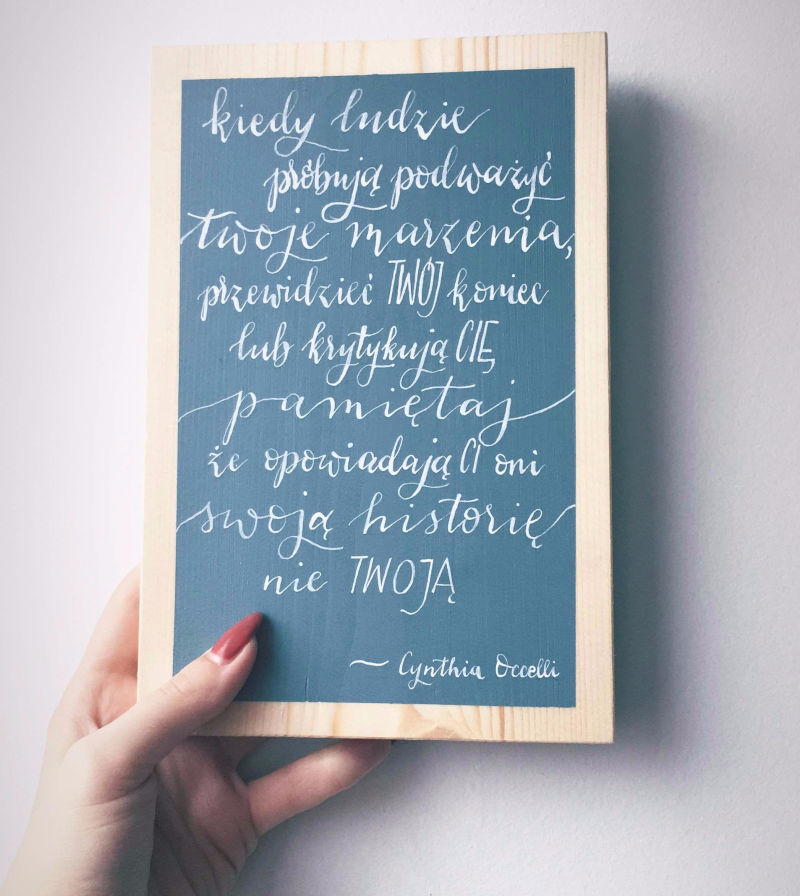 kiedy ludzie
próbują podważyć
twoje marzenia,
przewidzieć TWÓJ koniec
lub krytykują CIĘ
pamiętaj
że opowiadają CI oni
swoją historię
nie TWOJĄ
— Cynthia Occelli